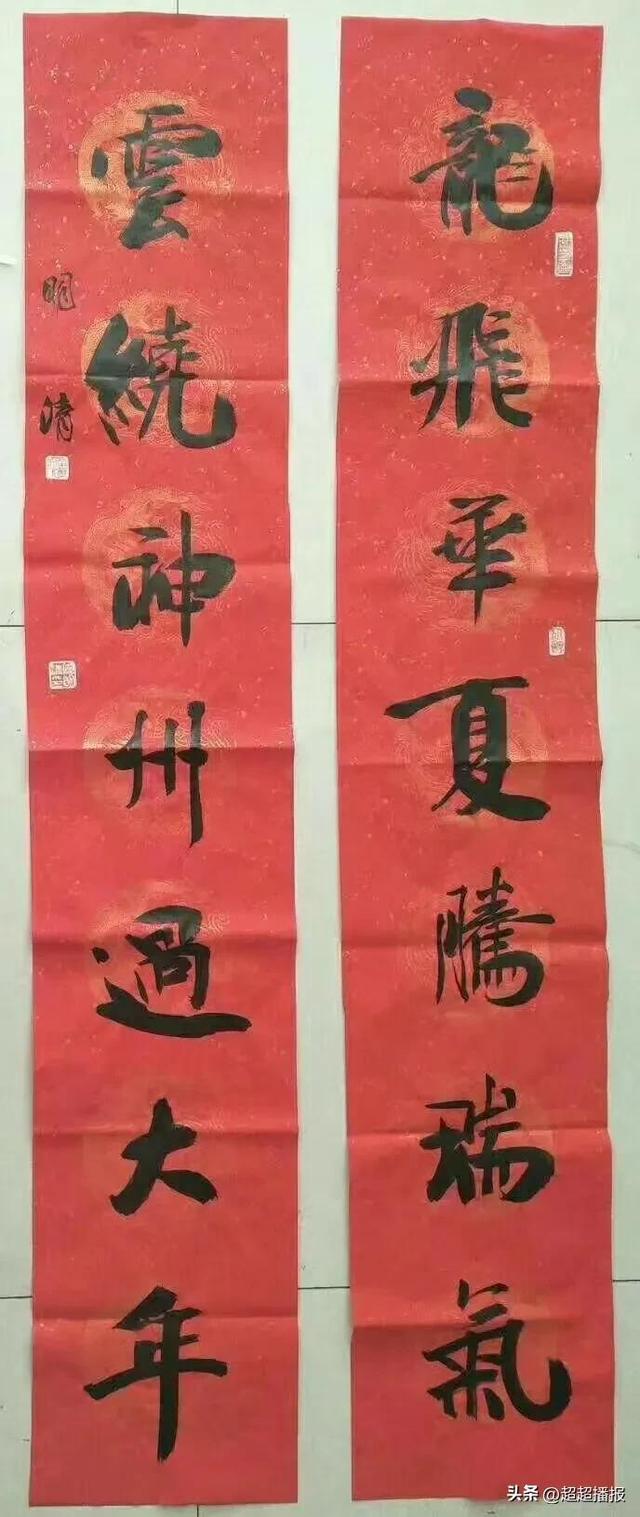 龍飛華夏騰瑞氣
雲繞神州過大年
明清
头条 @超超播报